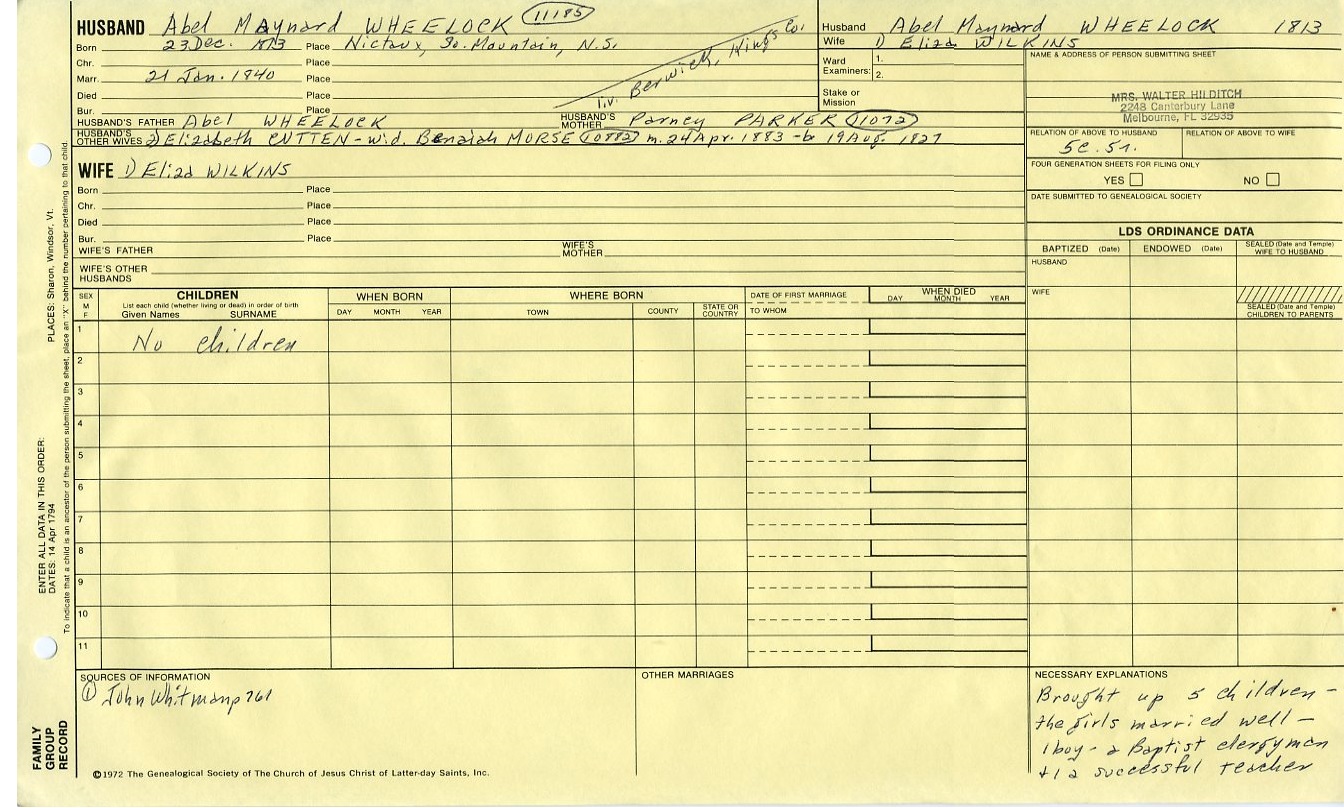 HUSBAND Abel Maynard WHEELOCK 11185
Born 23 Dec. 1813 Place Nictaux, So. Mountain, N.S.
Chr. Place
Marr. 21 Jan. 1840 Place
liv. Berwick, Kings Co.
Died Place
Bur. Place
HUSBAND'S FATHER Abel WHEELOCK HUSBAND'S MOTHER Parney PARKER 11072
HUSBAND'S OTHER WIVES 2) Elizabeth CUTTEN - wid. Benaiah MORSE (10782) m. 24 Apr. 1883 - b 19 Aug. 1827
Husband Abel Maynard WHEELOCK 1813
Wife 1) Eliza WILKINS
Ward Examiners: 1.
2.
Stake or Mission
NAME & ADDRESS OF PERSON SUBMITTING SHEET
MRS. WALTER HILDITCH
2248 Canterbury Lane
Melbourne, FL 32935
RELATION OF ABOVE TO HUSBAND RELATION OF ABOVE TO WIFE
5c. 5r.
FOUR GENERATION SHEETS FOR FILING ONLY
YES NO
DATE SUBMITTED TO GENEALOGICAL SOCIETY
WIFE 1) Eliza WILKINS
Born Place
Chr. Place
Died Place
Bur. Place
WIFE'S FATHER WIFE'S MOTHER
WIFE'S OTHER HUSBANDS
LDS ORDINANCE DATA
BAPTIZED (Date) ENDOWED (Date) SEALED (Date and Temple) WIFE TO HUSBAND
HUSBAND
WIFE
SEALED (Date and Temple) CHILDREN TO PARENTS
SEX M F
CHILDREN
List each child (whether living or dead) in order of birth
Given Names SURNAME
WHEN BORN
DAY MONTH YEAR
WHERE BORN
TOWN COUNTY STATE OR COUNTRY
DATE OF FIRST MARRIAGE
TO WHOM
WHEN DIED
DAY MONTH YEAR
1 No children
2
3
4
5
6
7
8
9
10
11
SOURCES OF INFORMATION
① John Whitman p 761
OTHER MARRIAGES
NECESSARY EXPLANATIONS
Brought up 5 children -
the girls married well -
1 boy - a Baptist clergyman
+ 1 a successful teacher
©1972 The Genealogical Society of The Church of Jesus Christ of Latter-day Saints, Inc.
FAMILY GROUP RECORD
ENTER ALL DATA IN THIS ORDER:
DATES: 14 Apr 1794
PLACES: Sharon, Windsor, Vt.
To indicate that a child is an ancestor of the person submitting the sheet, place an "X" behind the number pertaining to that child.